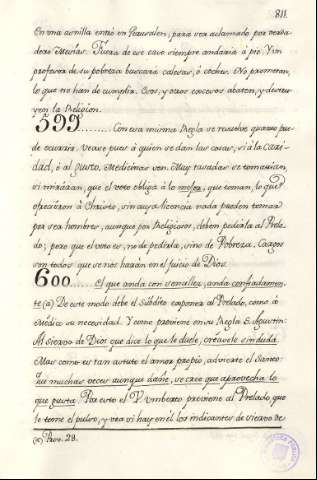 811.
En una asnilla entró en Jerusalen, para ser aclamado por verda-
dero Mesías. Fuera de ese caso siempre andaria á pie. Y un
profesor de su pobreza buscará calesas, ó coches. No prometan,
lo que no han de cumplir. Esos, y otros excesos abaten, y destru-
yen la Religion.
599......... Con esa misma Regla se resuelve quanto pue-
de ocurrir. Vease pues á quien se dan las cosas, si á la cari-
dad, ó al gusto. Medicinas ven. Muy tasadas se tomarian,
si miráran, que el voto obliga á lo mejor, que toman, lo que
ofrecieron á Christo, sin cuya licencia nada pueden tomar
por ser hombres, aunque por Religiosos, deben pedirla al Prela-
do; pero que el voto es, no de pedirla, sino de Pobreza. Cargos
son todos que se nos harán en el juicio de Dios.
600......... El que anda con sencillez, anda confiadamen-
te (a) De este modo debe el Súbdito exponer al Prelado, como á
Médico su necesidad. Y como previene en su Regla S. Agustin:
Al siervo de Dios que dice lo que le duele, créasele sin duda.
Mas como es tan astuto el amor propio, advierte el Santo:
Que muchas veces aunque dañe, se cree que aprovecha lo
que gusta. Por esto el V. Umberto previene al Prelado, que
le tome el pulso, y vea si hay en él los indicantes de siervo de
(a) Prov. 29.